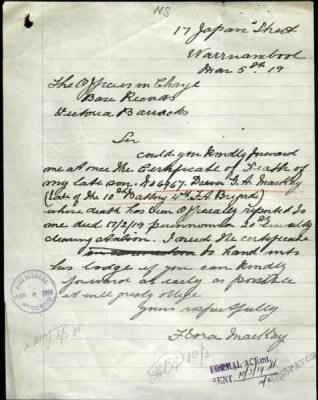 17 Japan Street
Warrnambool
Mar 5th 19
The Officer in Charge
Base Records
Victoria Barracks
Sir
Could you kindly forward
me at once the Certificate of Death of
my late son. No 6467. Driver G. H. Mackay
(Late of the 10th Battery 4th F.A. Brigade)
whose death has been Officially reported to
me died 17/2/19 pneumonia 20 Casualty
clearing Station. I need the certificate
to hand into
his lodge if you can kindly
forward as early as possible
it will greatly oblige
Yours respectfully
Flora Mackay
BASE RECORDS
FORMAL ACKmt.
SENT 10/3/19